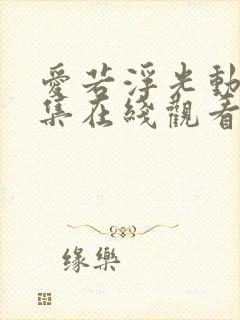 愛若浮光動
集在綫觀看
缘樂